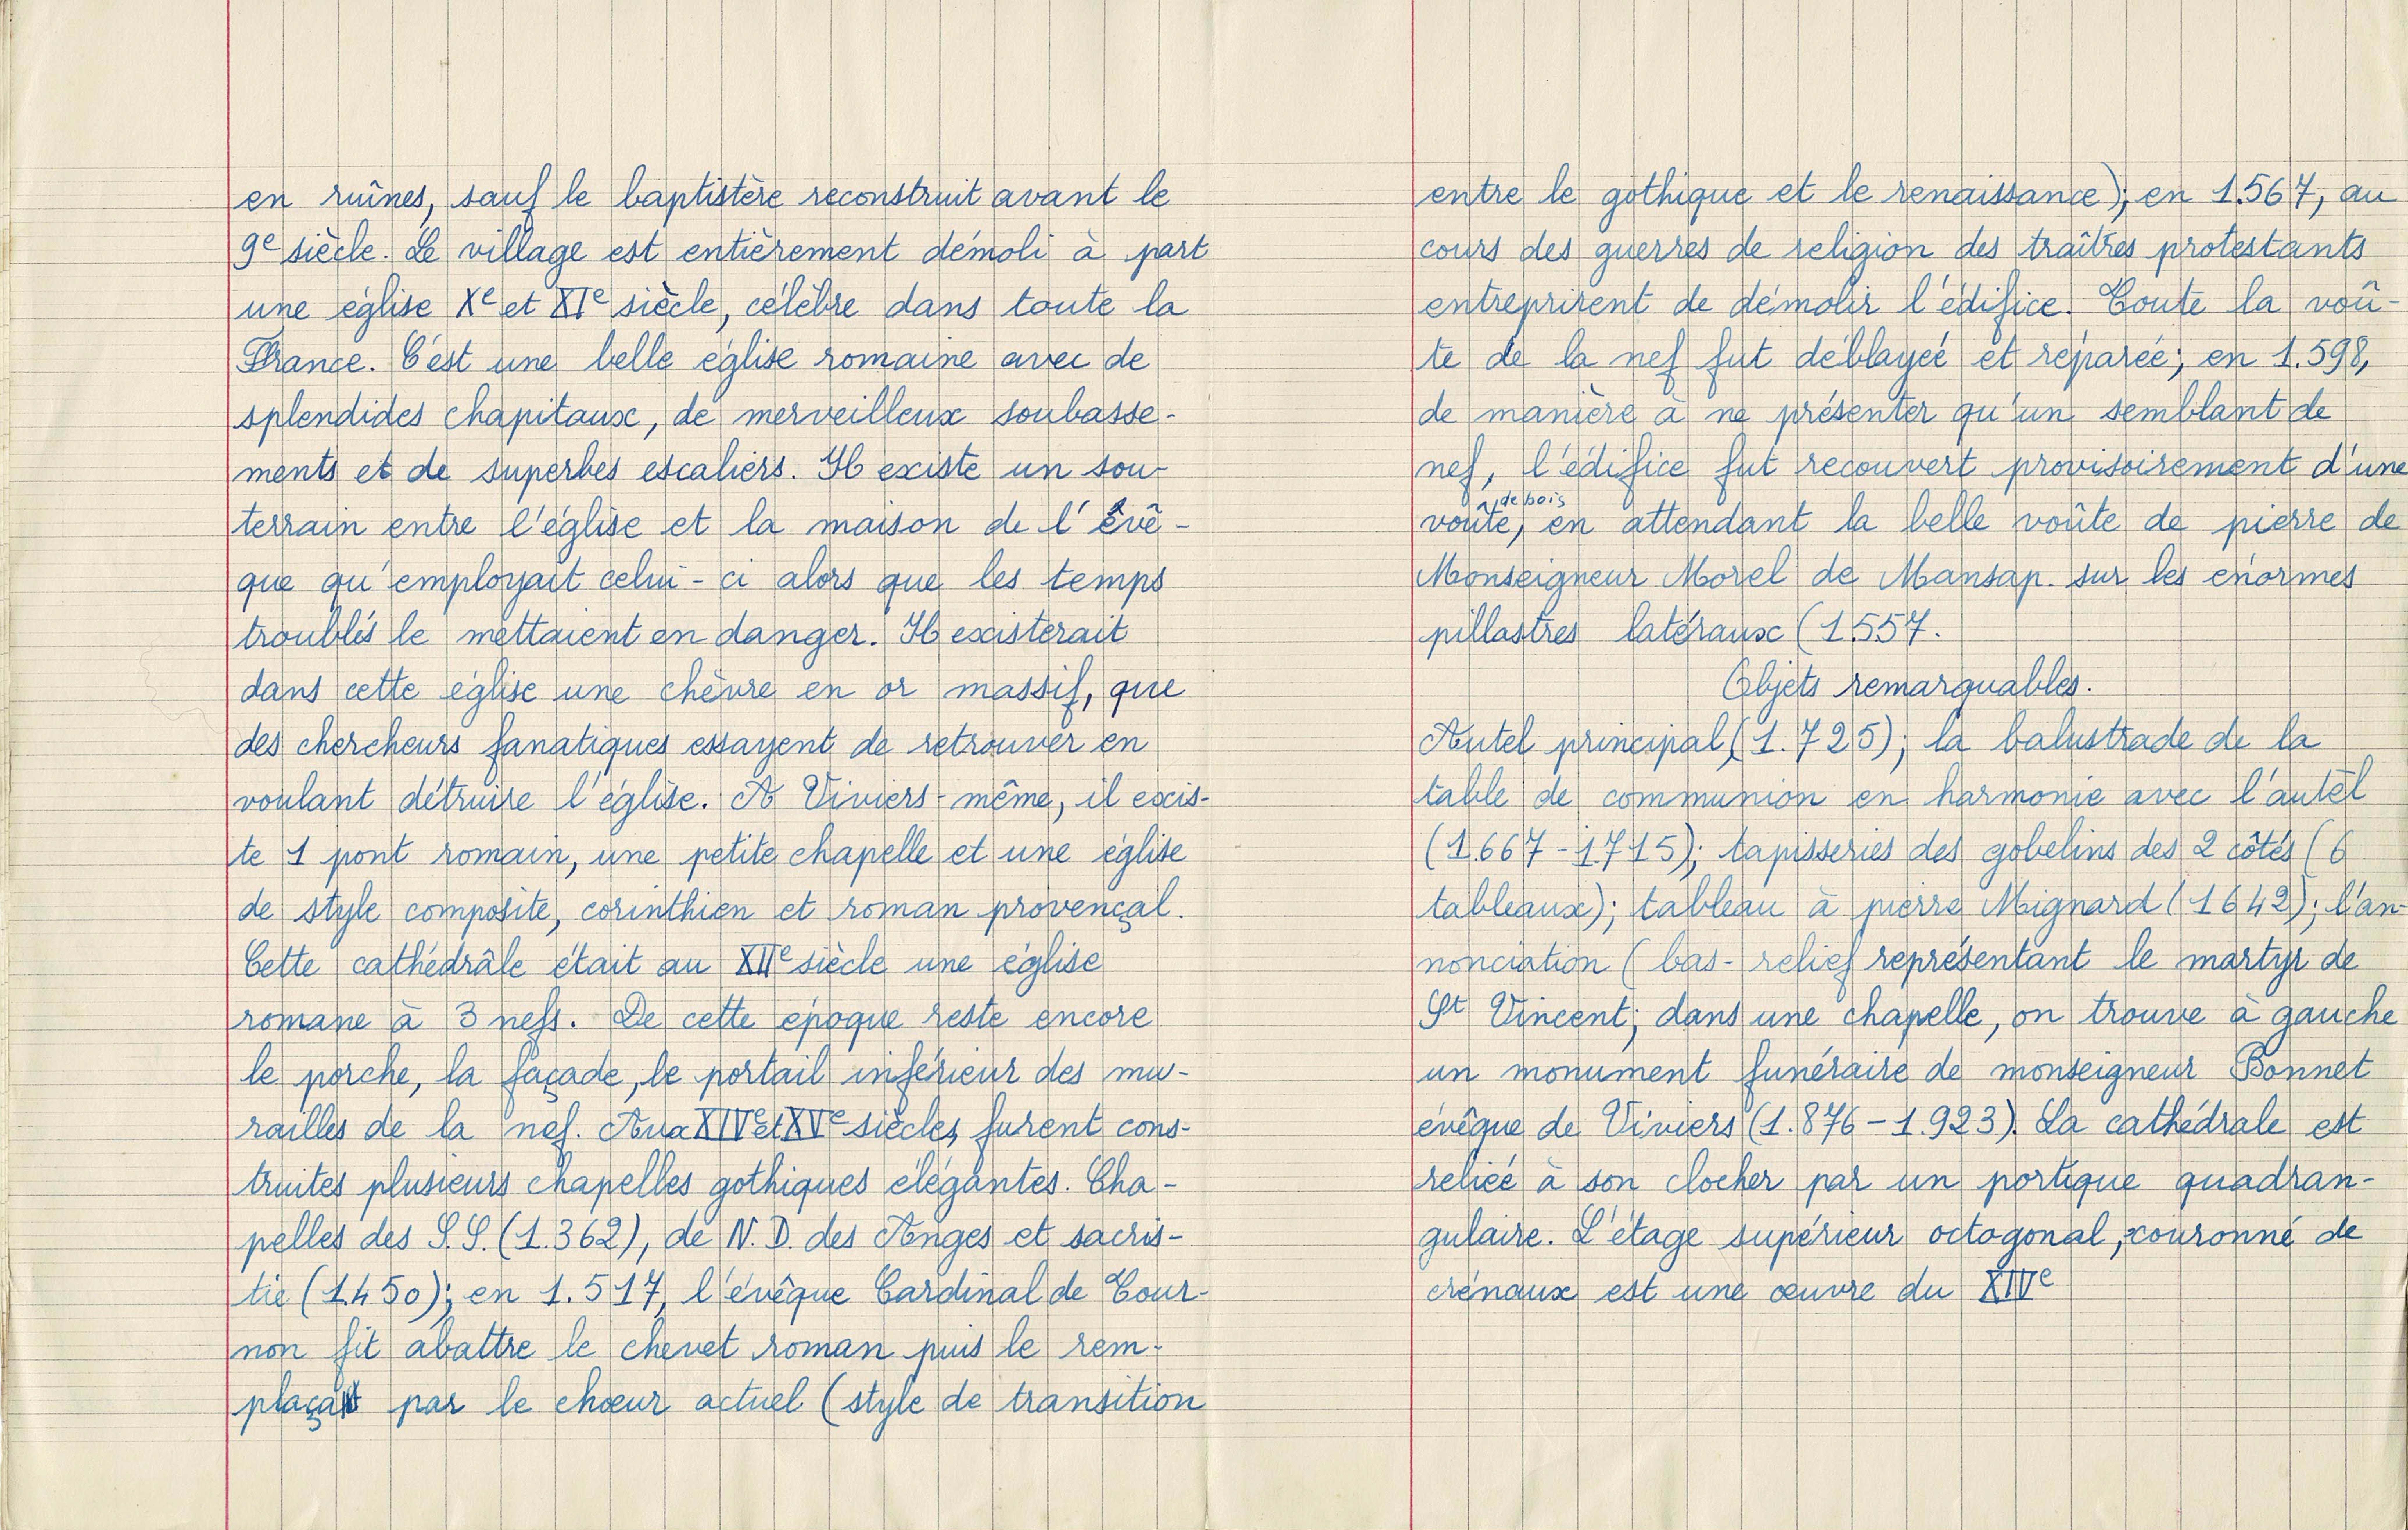 en ruînes, sauf le baptistère reconstruit avant le
9e siècle. Le village est entièrement démoli à part
une église Xe et XIe siècle, célèbre dans toute la
France. C'est une belle église romaine avec de
splendides chapitaux, de merveilleux soubasse-
ments et de superbes escaliers. Il existe un sou-
terrain entre l'église et la maison de l'évê-
que qu'employait celui-ci alors que les temps
troublés le mettaient en danger. Il existerait
dans cette église une chèvre en or massif, que
des chercheurs fanatiques essayent de retrouver en
voulant détruire l'église. A Viviers-même, il exis-
te 1 pont romain, une petite chapelle et une église
de style composite, corinthien et roman provençal.
Cette cathédrâle était au XIIe siècle une église
romane à 3 nefs. De cette époque reste encore
le porche, la façade, le portail inférieur des mu-
railles de la nef. Aux XIVe et XVe siècles, furent cons-
truites plusieurs chapelles gothiques élégantes. Cha-
pelles des S.S. (1.362), de N.D. des Anges et sacris-
tie (1.450); en 1.517, l'évêque Cardinal de Tour-
non fit abattre le chevet roman puis le rem-
plaça par le chœur actuel (style de transition
entre le gothique et le renaissance); en 1.567, au
cours des guerres de religion des traîtres protestants
entreprirent de démolir l'édifice. Toute la voû-
te de la nef fut déblayée et réparée; en 1.598,
de manière à ne présenter qu'un semblant de
nef, l'édifice fut recouvert provisoirement d'une
voûte de bois, en attendant la belle voûte de pierre de
Monseigneur Morel de Mansap. sur les énormes
pillastres latéraux (1557.
Objets remarquables.
Autel principal (1.725); la balustrade de la
table de communion en harmonie avec l'autel
(1.667-1715); tapisseries des gobelins des 2 côtés (6
tableaux); tableau à pierre Mignard (1642); l'an-
nonciation (bas-relief représentant le martyr de
St Vincent; dans une chapelle, on trouve à gauche
un monument funéraire de monseigneur Bonnet
évêque de Viviers (1.876-1.923). La cathédrale est
reliée à son clocher par un portique quadran-
gulaire. L'étage supérieur octogonal, couronné de
crénaux est une œuvre du XIVe